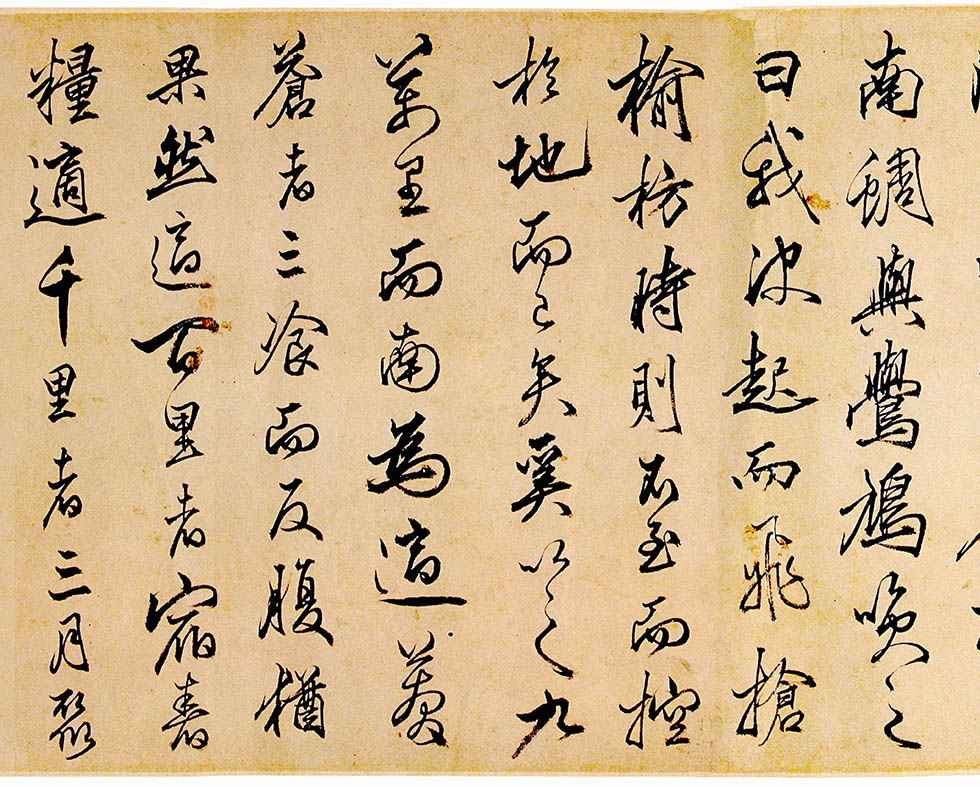 南蜩與鷽鳩咲之
曰我決起而飛搶
榆枋時則不至而控
於地而已矣奚以之九
萬里而南為適莽
蒼者三飡而反腹猶
果然適百里者宿舂
糧適千里者三月聚